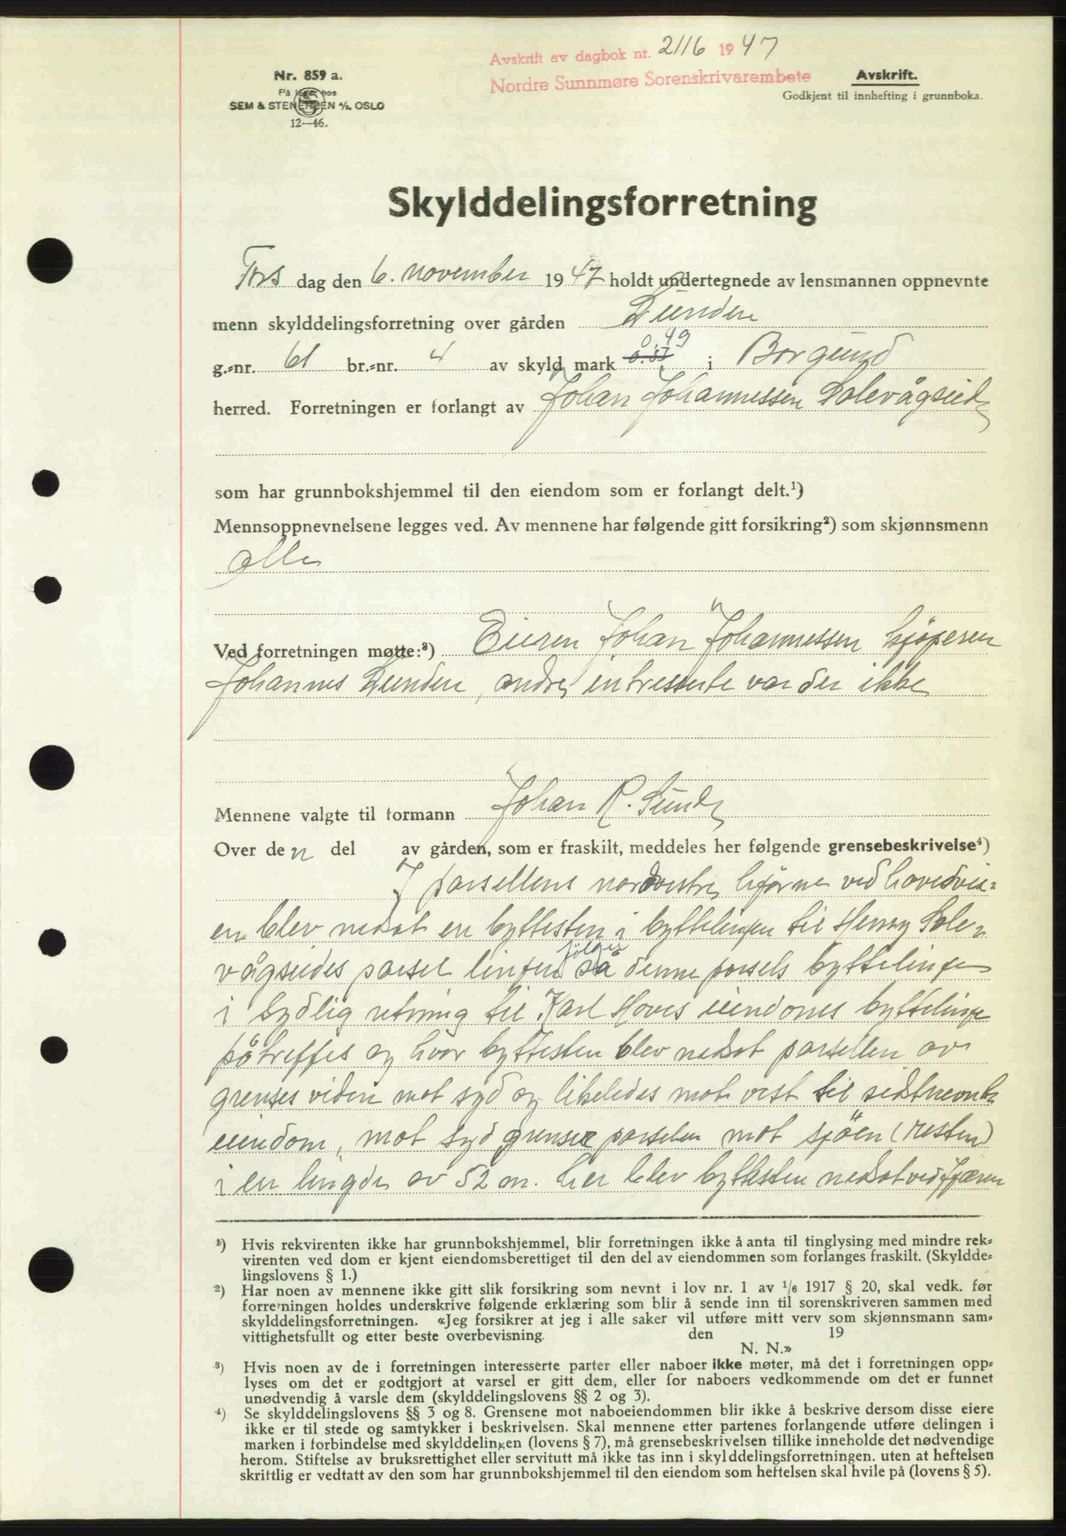 Avskrift av dagbok nr. 2116 1947
Nordre Sunnmøre Sorenskrivarembete
Nr. 859 a.
På lager hos
SEM & STENERSEN A/S, OSLO
12—46.
Avskrift.
Godkjent til innhefting i grunnboka.
Skylddelingsforretning
Tors dag den 6. november 1947 holdt undertegnede av lensmannen oppnevnte
menn skylddelingsforretning over gården Lunden
0.49
g.-nr. 61 br.-nr. 4 av skyld mark i Borgund
herred. Forretningen er forlangt av Johan Johannessen Solevågseid
som har grunnbokshjemmel til den eiendom som er forlangt delt.¹)
Mennsoppnevnelsene legges ved. Av mennene har følgende gitt forsikring²) som skjønnsmenn
alle
Ved forretningen møtte:³) Eieren Johan Johannessen kjøperen
Johannes Lunden, andre intresserte var der ikke
Mennene valgte til formann Johan R. Sunde
Over den del av gården, som er fraskilt, meddeles her følgende grensebeskrivelse⁴)
I parsellens nordvestre hjørne ved hovedvei-
en blev nedsat en byttesten i byttelinjen til Henry Sole-
følges
vågseides parsel linjen så denne parsels byttelinje
i sydlig retning til Karl Hoves eiendoms byttelinje
påtreffes og hvor byttesten blev nedsat parsellen av
grenses videre mot syd og likeledes mot vest til sidstnevnte
eiendom, mot syd grenser parselen mot sjøen (resten)
i en lengde av 52 m. her blev byttesten nedsat ved fjæren
¹) Hvis rekvirenten ikke har grunnbokshjemmel, blir forretningen ikke å anta til tinglysing med mindre rek-
virenten ved dom er kjent eiendomsberettiget til den del av eiendommen som forlanges fraskilt. (Skyldde-
lingslovens § 1.)
²) Har noen av mennene ikke gitt slik forsikring som nevnt i lov nr. 1 av 1/6 1917 § 20, skal vedk. før
forretningen holdes underskrive følgende erklæring som blir å sende inn til sorenskriveren sammen med
skylddelingsforretningen. «Jeg forsikrer at jeg i alle saker vil utføre mitt verv som skjønnsmann sam-
vittighetsfullt og etter beste overbevisning. den 19
N. N.»
³) Hvis noen av de i forretningen interesserte parter eller naboer ikke møter, må det i forretningen opp-
lyses om det er godtgjort at varsel er gitt dem, eller for naboers vedkommende om det er funnet
unødvendig å varsle dem (skylddelingslovens §§ 2 og 3).
⁴) Se skylddelingslovens §§ 3 og 8. Grensene mot naboeiendommen blir ikke å beskrive dersom disse eiere
ikke er til stede og samtykker i beskrivelsen. Skal mennene etter partenes forlangende utføre delingen i
marken i forbindelse med skylddelingen (lovens § 7), må grensebeskrivelsen tillike inneholde det nødvendige
herom. Stiftelse av bruksrettighet eller servitutt må ikke tas inn i skylddelingsforretningen. uten at heftelsen
skriftlig er vedtatt av den som har grunnbokshjemmel til den eiendom som heftelsen skal hvile på (lovens § 5).